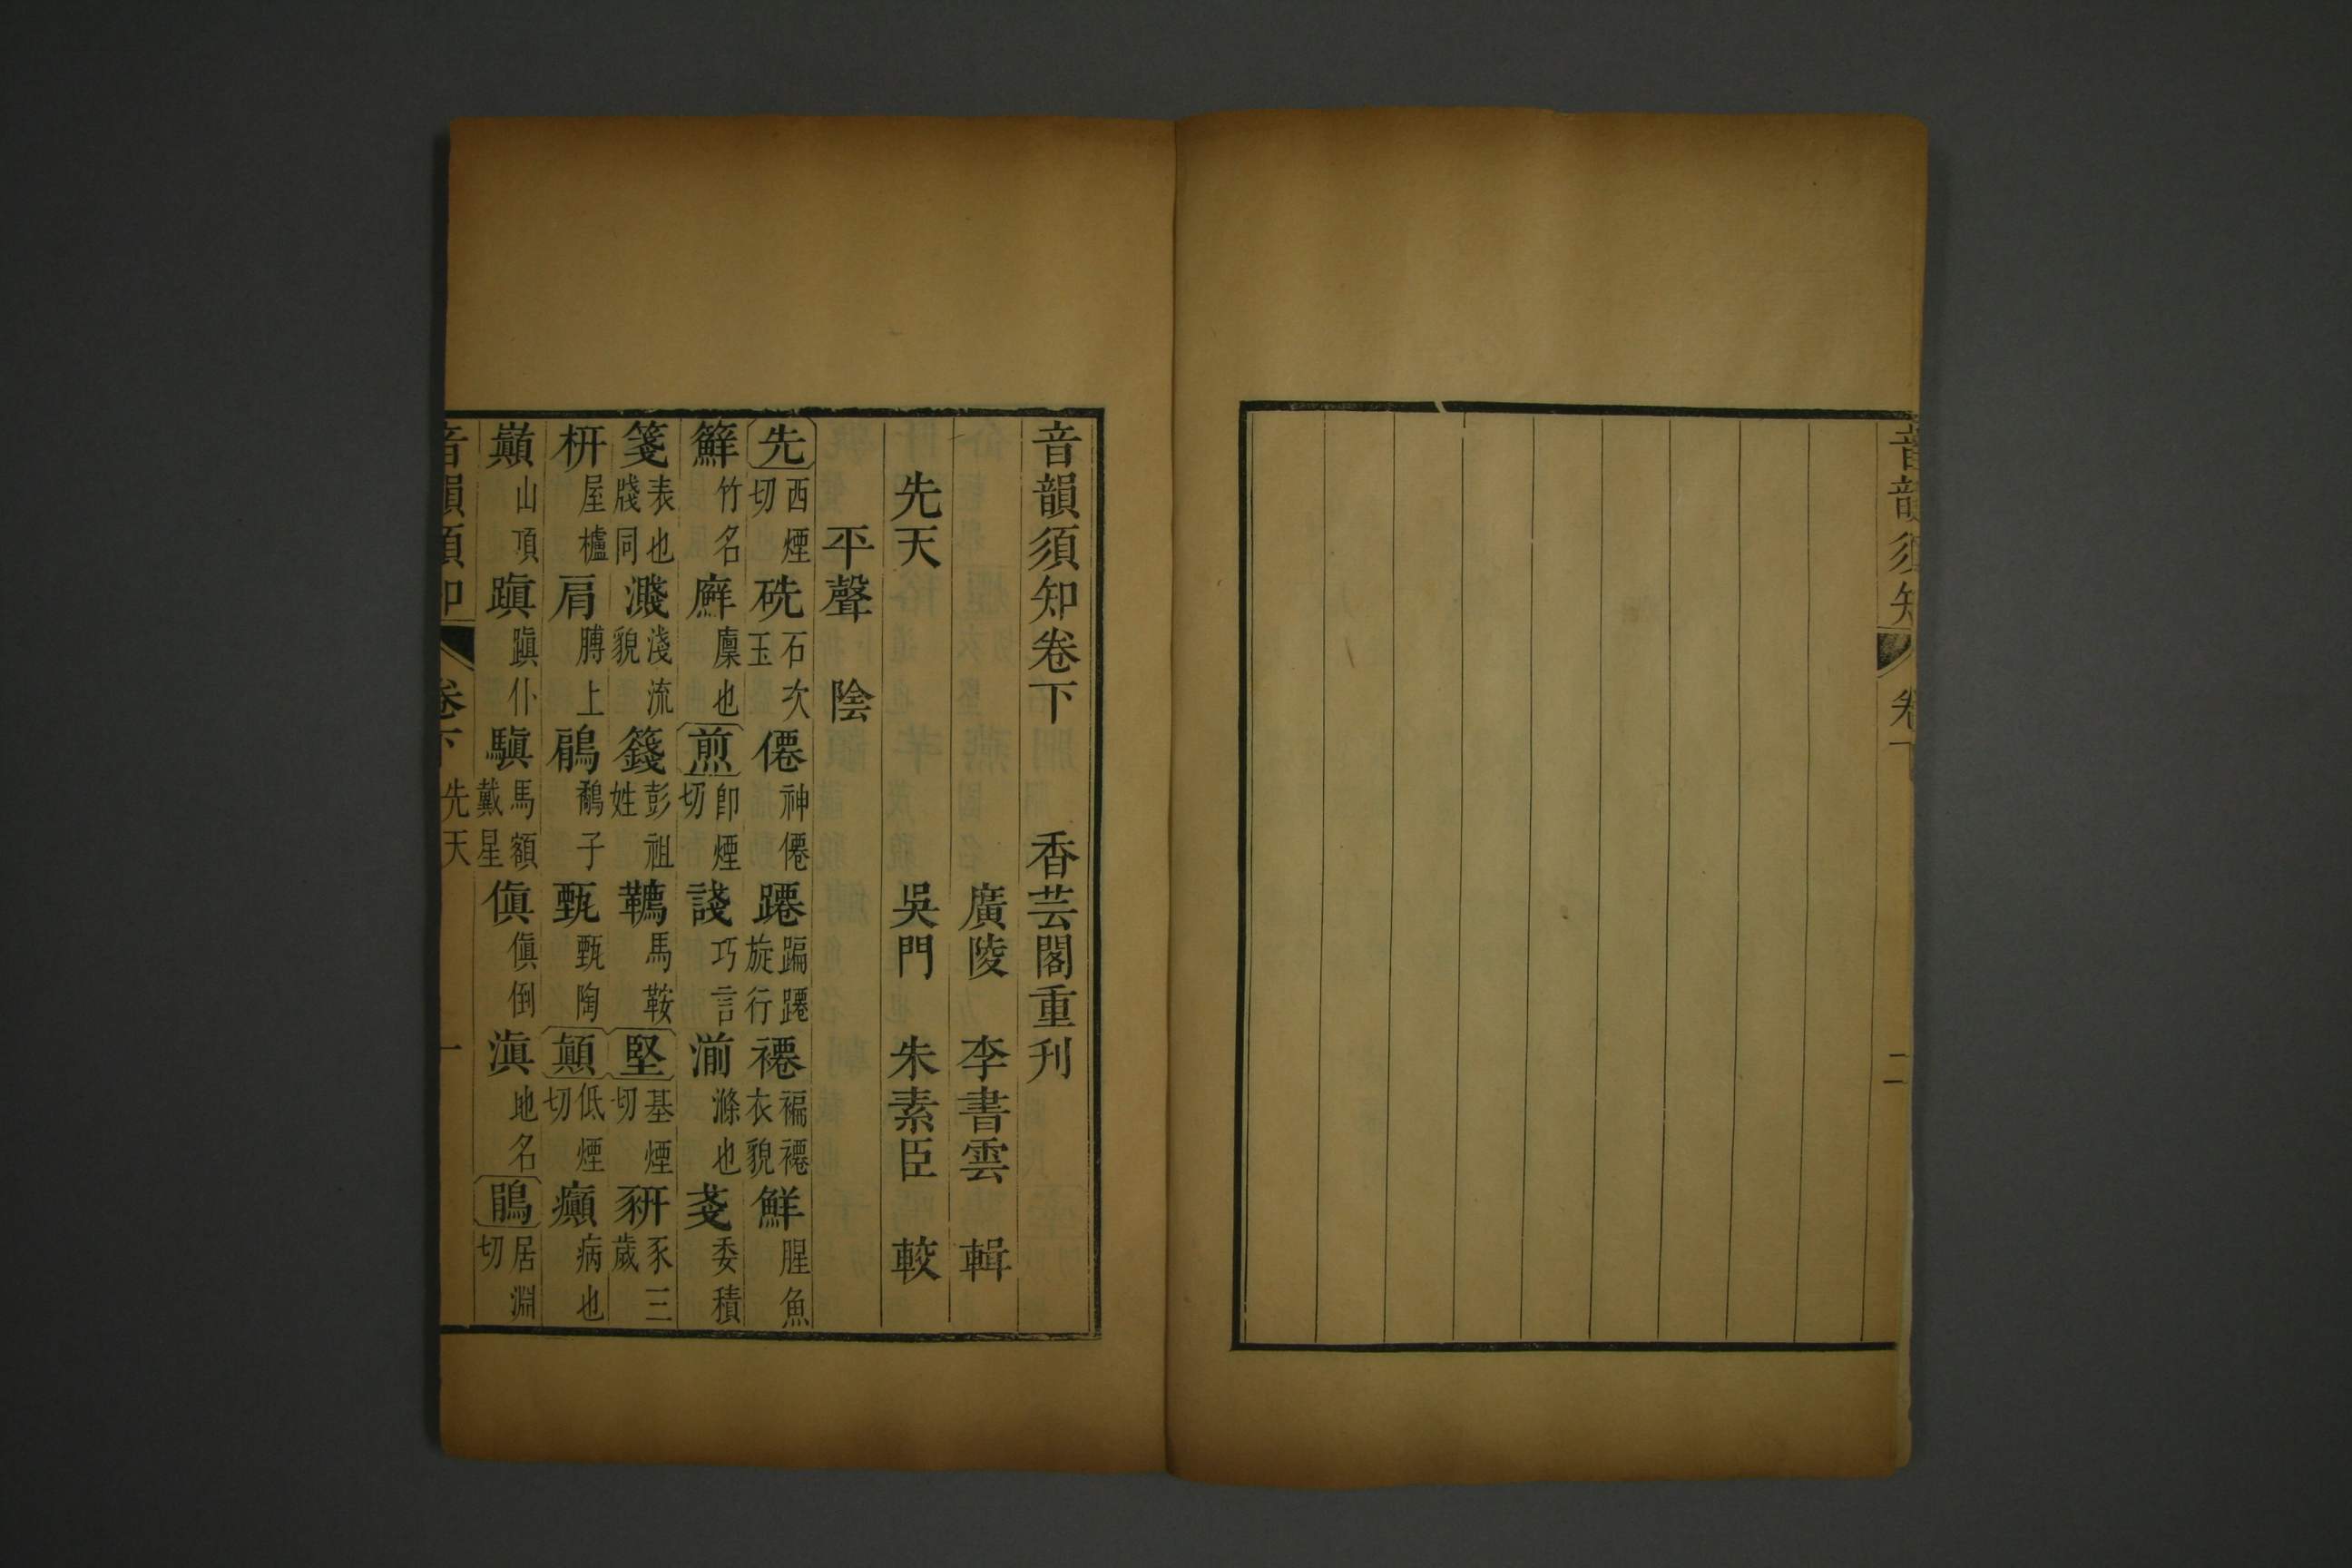 音韻須知
卷下
二
音韻須知卷下 香芸閣重刊
廣陵 李書雲 輯
吳門 朱素臣 較
先天
平聲 陰
先西煙切 硗石次玉 僊神僊 躚蹁躚旋行 褼褊褼衣貌 鮮腥魚
籼竹名 廯廩也 煎卽煙切 諓巧言 湔滌也 戔委積
箋表也牋同 濺淺流貌 籛彭祖姓 韉馬鞍 堅基煙切 豣豕三歲
枅屋櫨 肩膊上 鵳鷸子 甄甄陶 顛低煙切 癲病也
巔山頂 蹎蹎仆 驥馬額戴星 傎傎倒 滇地名 鵑居淵切
音韻須知 卷下 先天 一